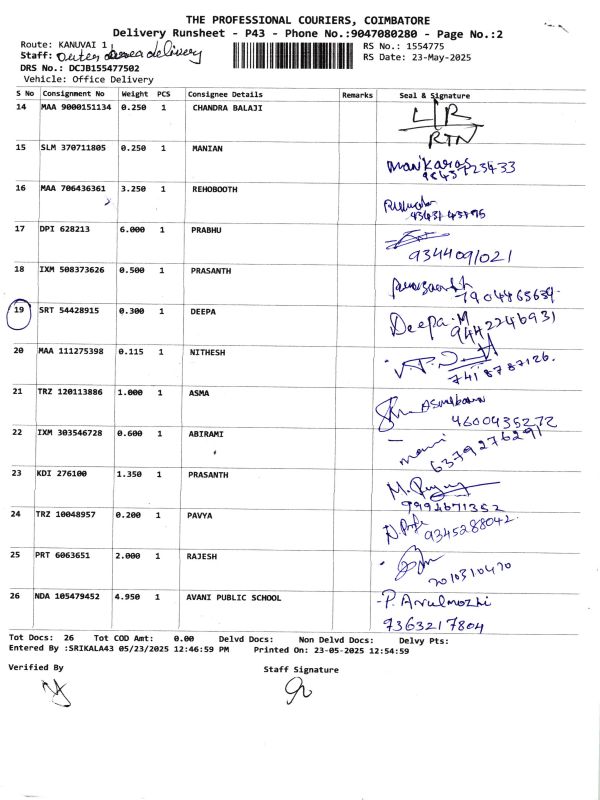 THE PROFESSIONAL COURIERS, COIMBATORE
Delivery Runsheet - P43 - Phone No.:9047080280 - Page No.:2
Route: KANUVAI 1
RS No.: 1554775
Staff: outer area delivery
RS Date: 23-May-2025
DRS No.: DCJB155477502
Vehicle: Office Delivery
S No Consignment No Weight PCS Consignee Details Remarks Seal & Signature
14 MAA 9000151134 0.250 1 CHANDRA BALAJI
RTN
15 SLM 370711805 0.250 1 MANIAN
16 MAA 706436361 3.250 1 REHOBOOTH
17 DPI 628213 6.000 1 PRABHU
9344091021
18 IXM 508373626 0.500 1 PRASANTH
7904465634
19 SRT 54428915 0.300 1 DEEPA Deepa.M
9442246931
20 MAA 111275398 0.115 1 NITHESH
7418787126.
21 TRZ 120113886 1.000 1 ASMA
4600435272
22 IXM 303546728 0.600 1 ABIRAMI
6379276291
23 KDI 276100 1.350 1 PRASANTH
9994671352
24 TRZ 10048957 0.200 1 PAVYA
9345288042.
25 PRT 6063651 2.000 1 RAJESH
26 NDA 105479452 4.950 1 AVANI PUBLIC SCHOOL P. Arulmozhi
9363217804
Tot Docs: 26 Tot COD Amt: 0.00 Delvd Docs: Non Delvd Docs: Delvy Pts:
Entered By :SRIKALA43 05/23/2025 12:46:59 PM Printed On: 23-05-2025 12:54:59
Verified By Staff Signature